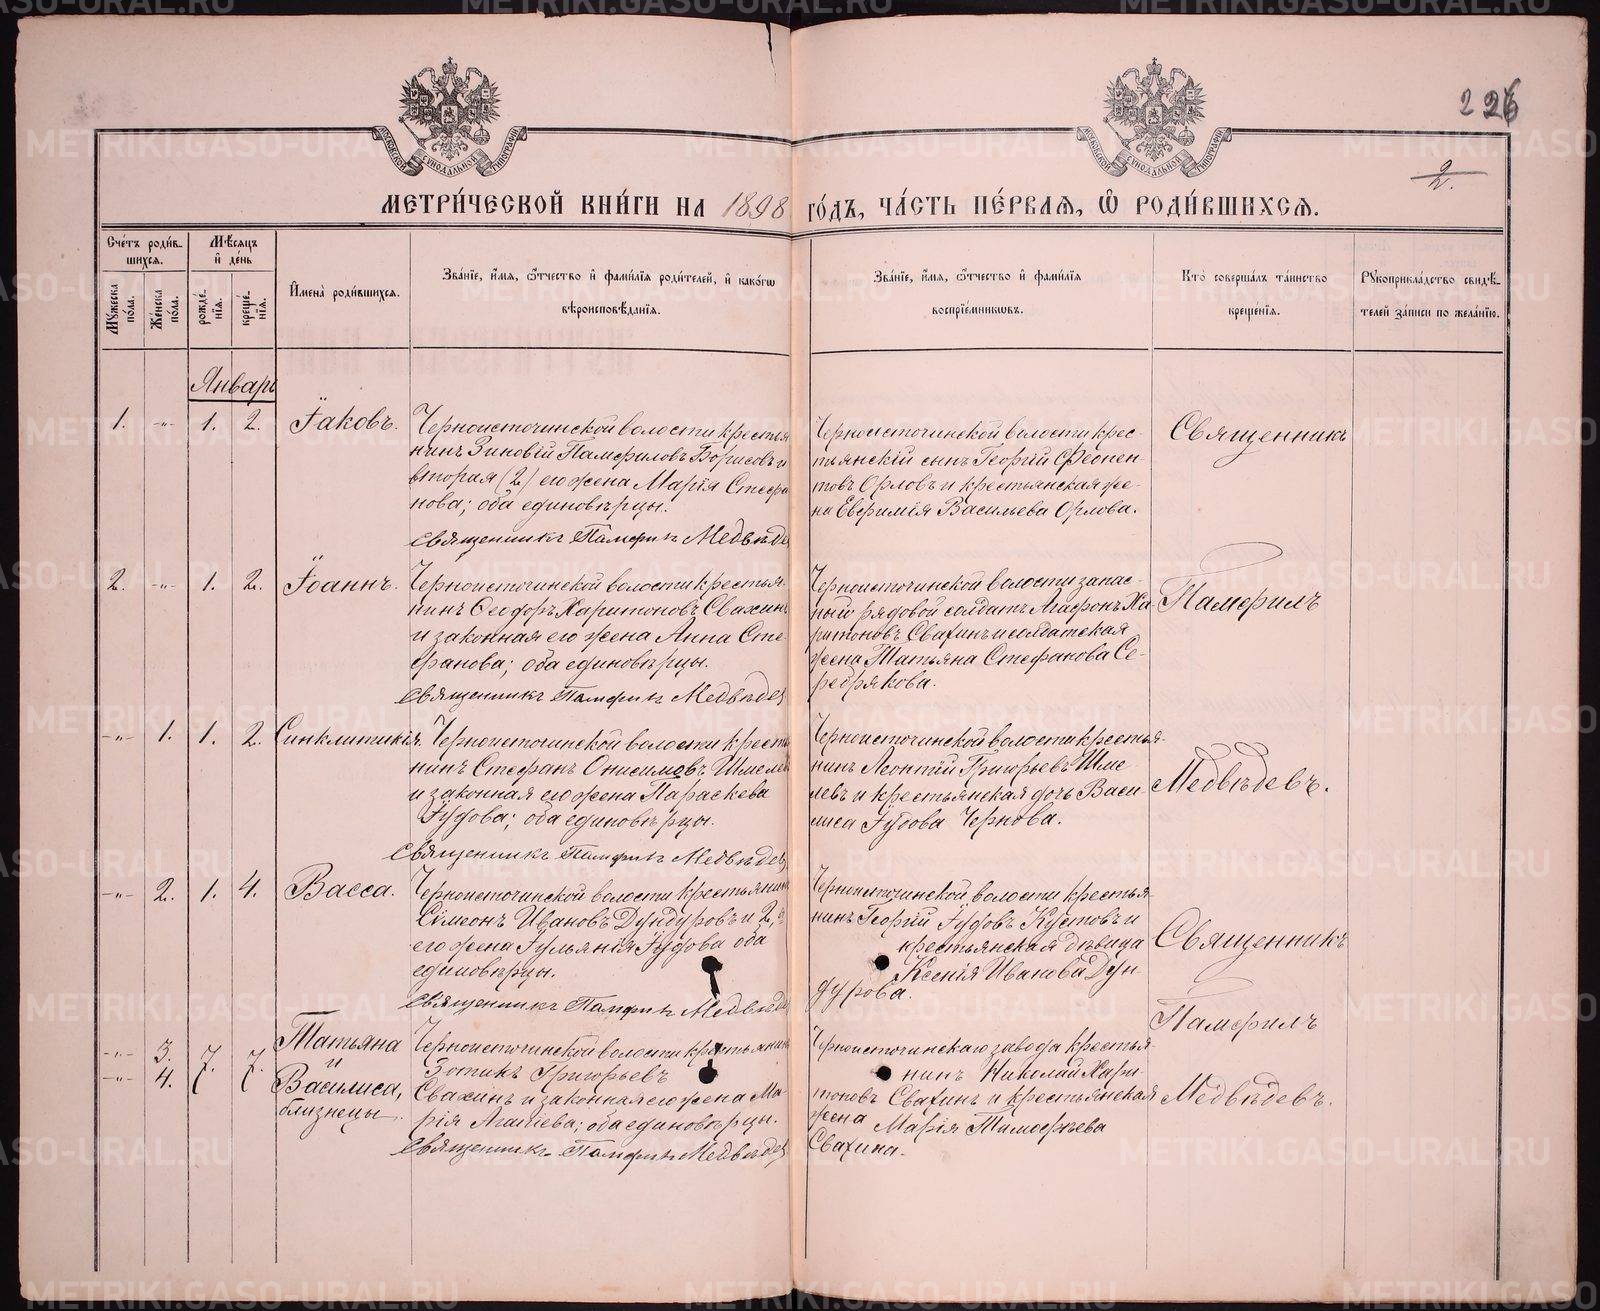 226
2.
МОСКОВСКОЙ СИНОДАЛЬНОЙ ТИПОГРАФІИ
МОСКОВСКОЙ СИНОДАЛЬНОЙ ТИПОГРАФІИ
МЕТРИ́ЧЕСКОЙ КНИ́ГИ НА 1898 ГО́ДЪ, ЧА́СТЬ ПЕ́РВАЯ, Ѿ РОДИ́ВШИХСЯ.
Сче́тъ роди́в-
шихся.
Мѣ́сяцъ
и҆ де́нь
Му́жеска по́ла.
Же́нска по́ла.
рожде́-
нїя.
креще́-
нїя.
И҆мена̀ роди́вшихся.
Зва́нїе, и҆́мя, ѻ҆́тчество и҆ фами́лїя роди́телей, и҆ како́гѡ
вѣроисповѣ́данїя.
Зва́нїе, и҆́мя, ѻ҆́тчество и҆ фами́лїя
воспрїе́мниковъ.
Кто̀ соверша́лъ та́инство
креще́нїя.
Рукоприкла́дство свидѣ́-
телей за́писи по жела́нїю.
Январь
1. -"- 1. 2. Іаковъ.
Черноисточинской волости крестья
нинъ Зиновій Памфиловъ Борисовъ и
вторая (2) его жена Марія Стефа
нова; оба единовѣрцы.
Священникъ Памфилъ Медвѣде
Черноисточинской волости крес-
тьянскій сынъ Георгій Феонен-
товъ Орловъ и крестьянская же-
на Евфимія Васильева Орлова.
Священникъ
2. -"- 1. 2. Іоаннъ.
Черноисточинской волости крестья-
нинъ Ѳеодоръ Харитоновъ Свахинъ
и законная его жена Анна Сте-
фанова; оба единовѣрцы.
Священникъ Памфилъ Медвѣдев
Черноисточинской волости запас-
ный рядовой солдатъ Агафонъ Ха-
ритоновъ Свахинъ и солдатская
жена Татьяна Стефанова Се-
ребрякова.
Памфилъ
-"- 1. 1. 2. Синклитикія.
Черноисточинской волости кресть
нинъ Стефанъ Онисимовъ Шмелев
и законная его жена Параскева
Іудова; оба единовѣрцы.
Священникъ Памфилъ Медвѣдев
Черноисточинской волости крестья-
нинъ Леонтій Григорьевъ Шме
левъ и крестьянская дочь Васи
лиса Іудова Чернова.
Медвѣдевъ.
-"- 2. 1. 4. Васса.
Черноисточинской волости крестьянин
Сімеонъ Ивановъ Дундуровъ и 2,
его жена Іульянія Іудова оба
единовѣрцы.
Священникъ Памфилъ Медвѣде
Черноисточинской волости крестья
нинъ Георгій Іудовъ Кустовъ и
крестьянская дѣвица
Ксенія Иванова Дун
дурова.
Священникъ
-"- 3. 7. 7. Татьяна
и
-"- 4. Василиса,
близнецы.
Черноисточинской волости крестьянин
Зотикъ Григорьевъ
Свахинъ и законная его жена Ма-
рія Агапіева; оба единовѣрцы.
Священникъ Памфилъ Медвѣдев
Черноисточинскаго завода крестья-
нинъ Николай Хари
тоновъ Свахинъ и крестьянская
жена Марія Тимофеева
Свахина.
Памфилъ
Медвѣдевъ.
METRIKI.GASO-URAL.RU